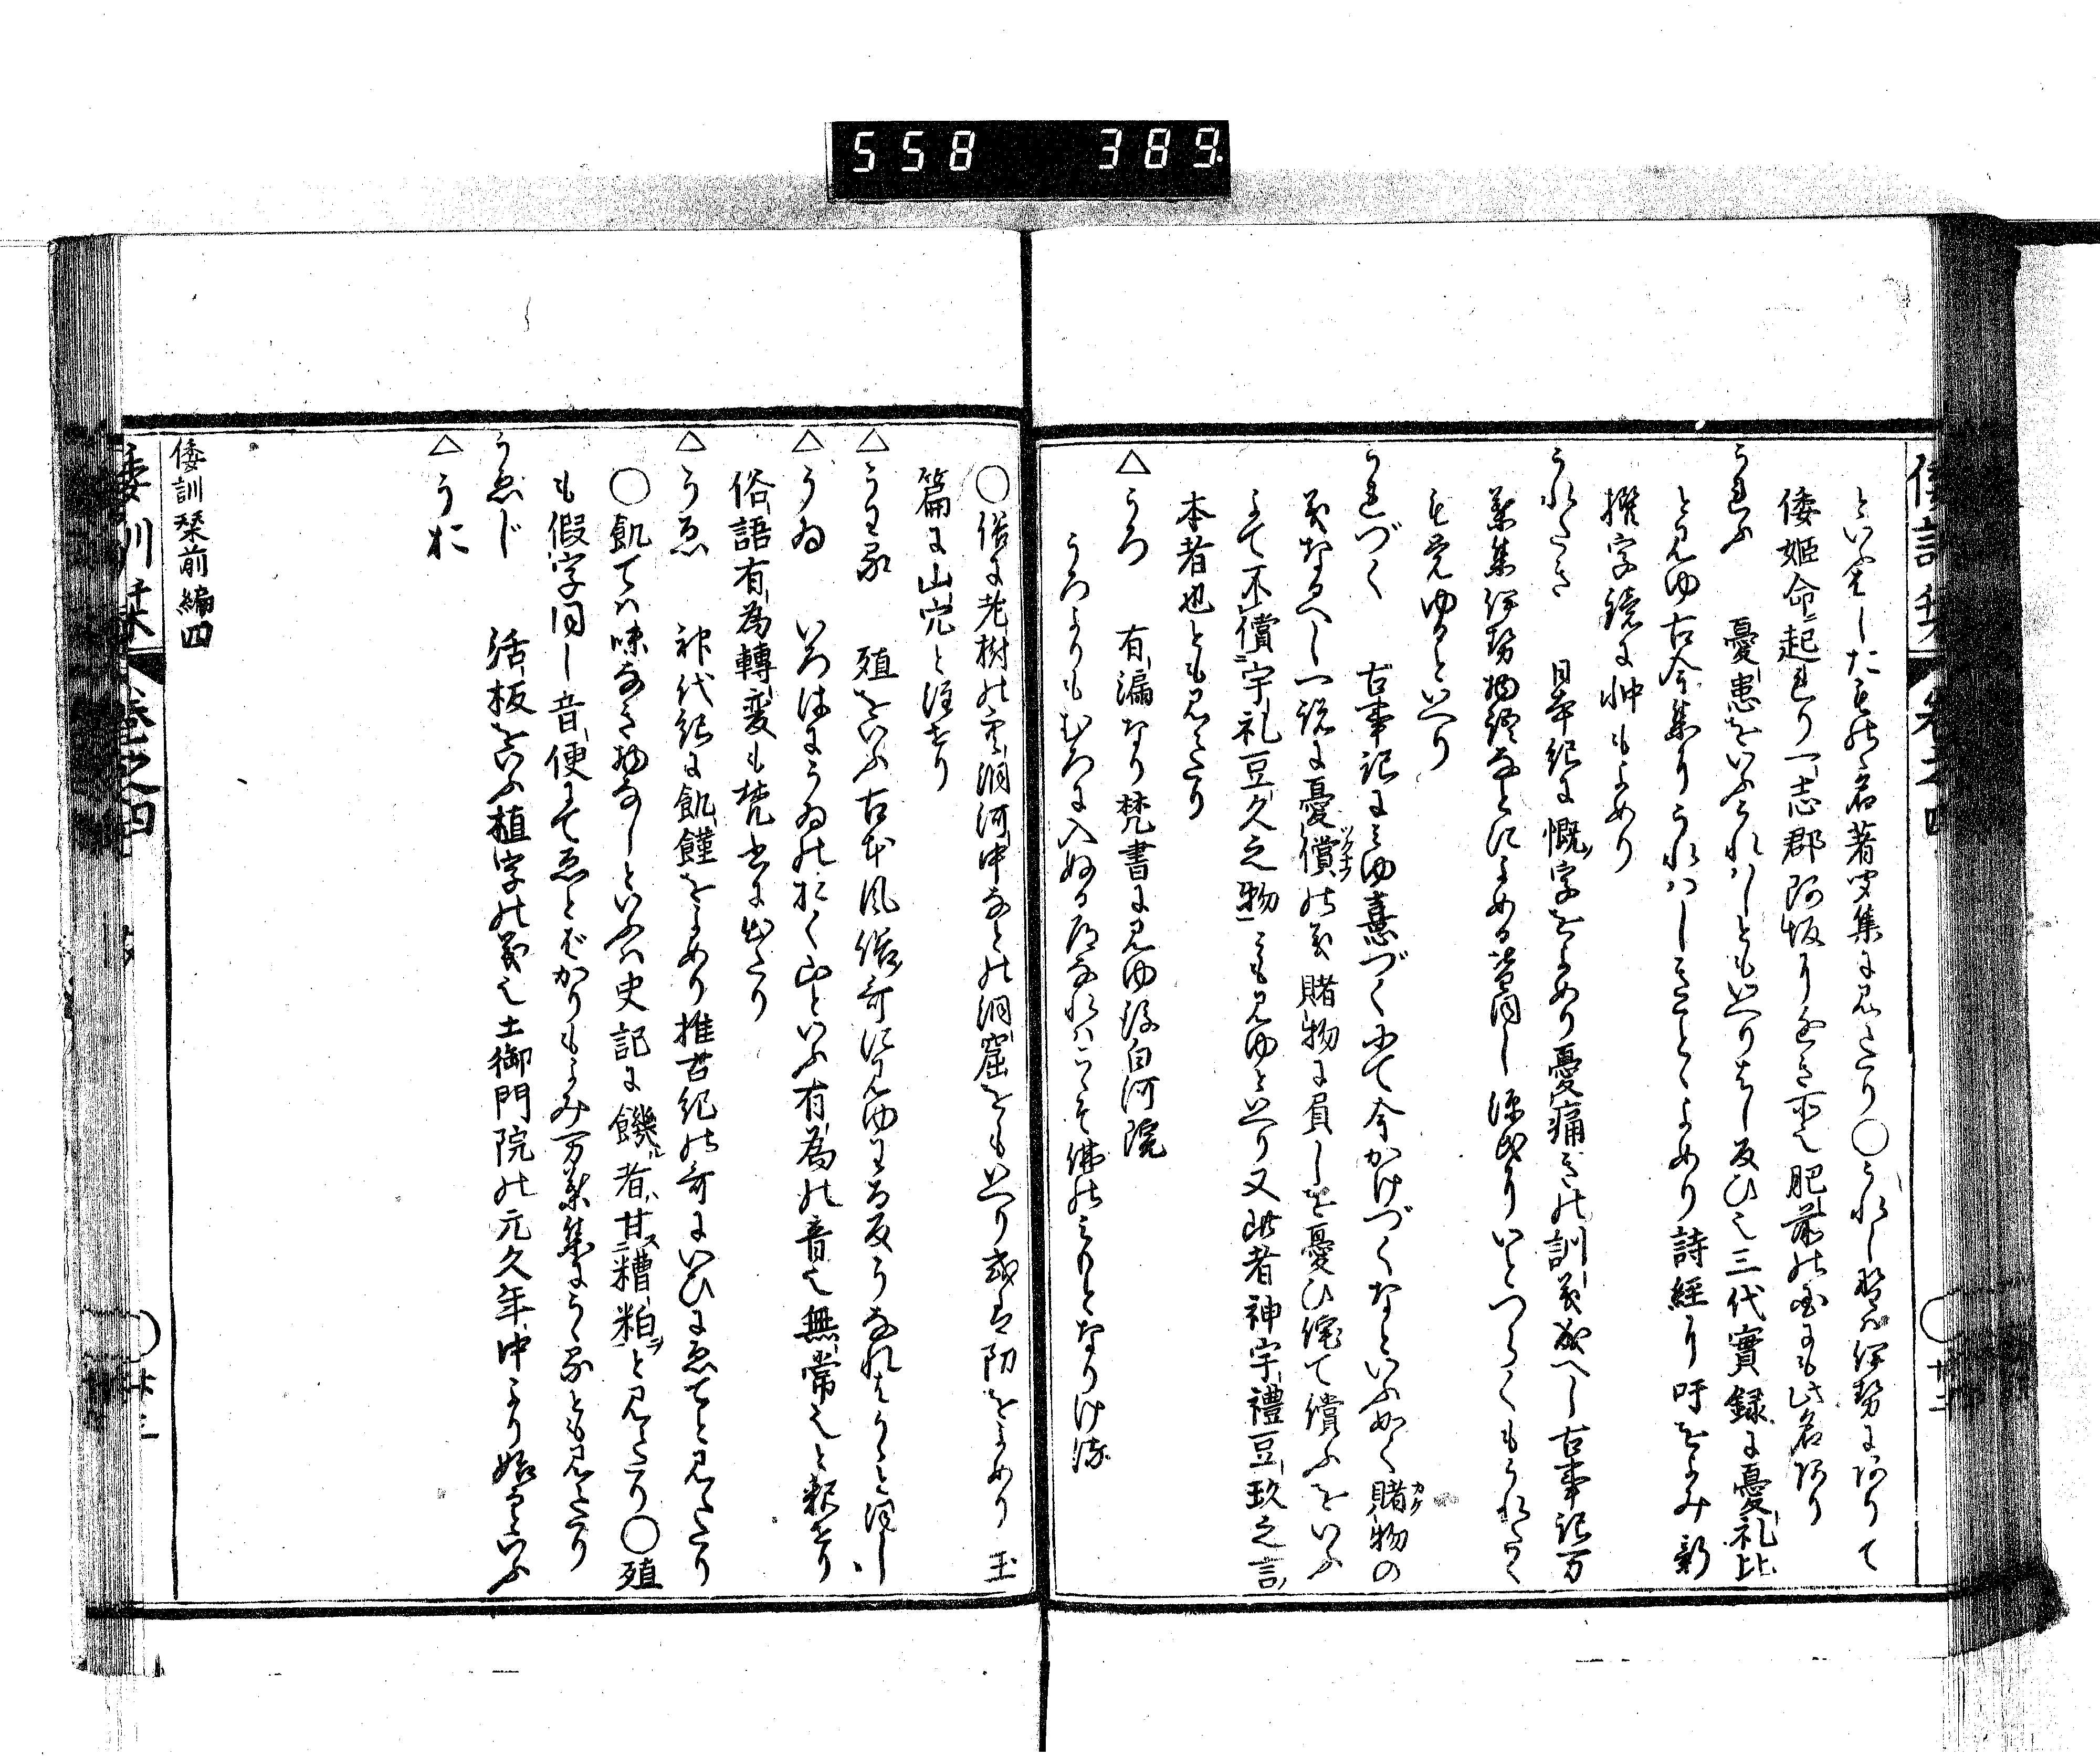 558 389
といふはした女の名著聞集に見えたり〇うれし野は伊勢にありて
倭姫命に起れり一志郡阿坂り近き所也肥前の国にも此名あり
うれふ 憂患をいふうれはしともいへりはし反ひ也三代實録に憂礼比
と見ゆ古今集りうれはしきことゝよめり詩經り吁をよみ新
撰字鏡に忡もよめり
うれたき 日本紀に慨字をよめり憂痛きの訓義成へし古事記万
葉集伊勢物語なとによめる皆同し源氏りいとつらくもうれたく
も覚ゆるといへり
うれづく 古事記にみゆ憙づくにて今かけづくなといふ如く賭物の
義なるへし一説に憂償の義賭物に負しを憂ひ侘て償ふをいふ
よて不償宇礼豆久之物ともみゆといへり又此者神宇禮豆玖之言
本者也とも見えたり
△うろ 有漏なり梵書に見ゆ後白河院
うろよりもむろに入ぬる道なれはこれそ佛のみもとなりける
〇俗に老樹の空洞河中なとの洞窟をもいへり或は阞をよめり 玉
篇に山穴と注せり
△うわる 殖をいふ古本風俗哥に見ゆわる反うなれはうゝと同し
△うゐ いろはにうゐのおく山といふ有為の音也無常也と釈せり
俗語有為轉変も梵書に出たり
△うゑ 神代紀に飢饉をよめり推古紀の哥にいひにゑてと見えたり
〇飢ては味なき物なしといふは史記に饑者甘糟粕と見えたり〇殖
も假字同し音便にてゑとばかりもよみ万葉集にうゝるとも見えたり
うゑじ 活板をいふ植字の義也土御門院の元久年中より始るといふ
△うお
倭訓栞前編四
倭訓栞 卷之四